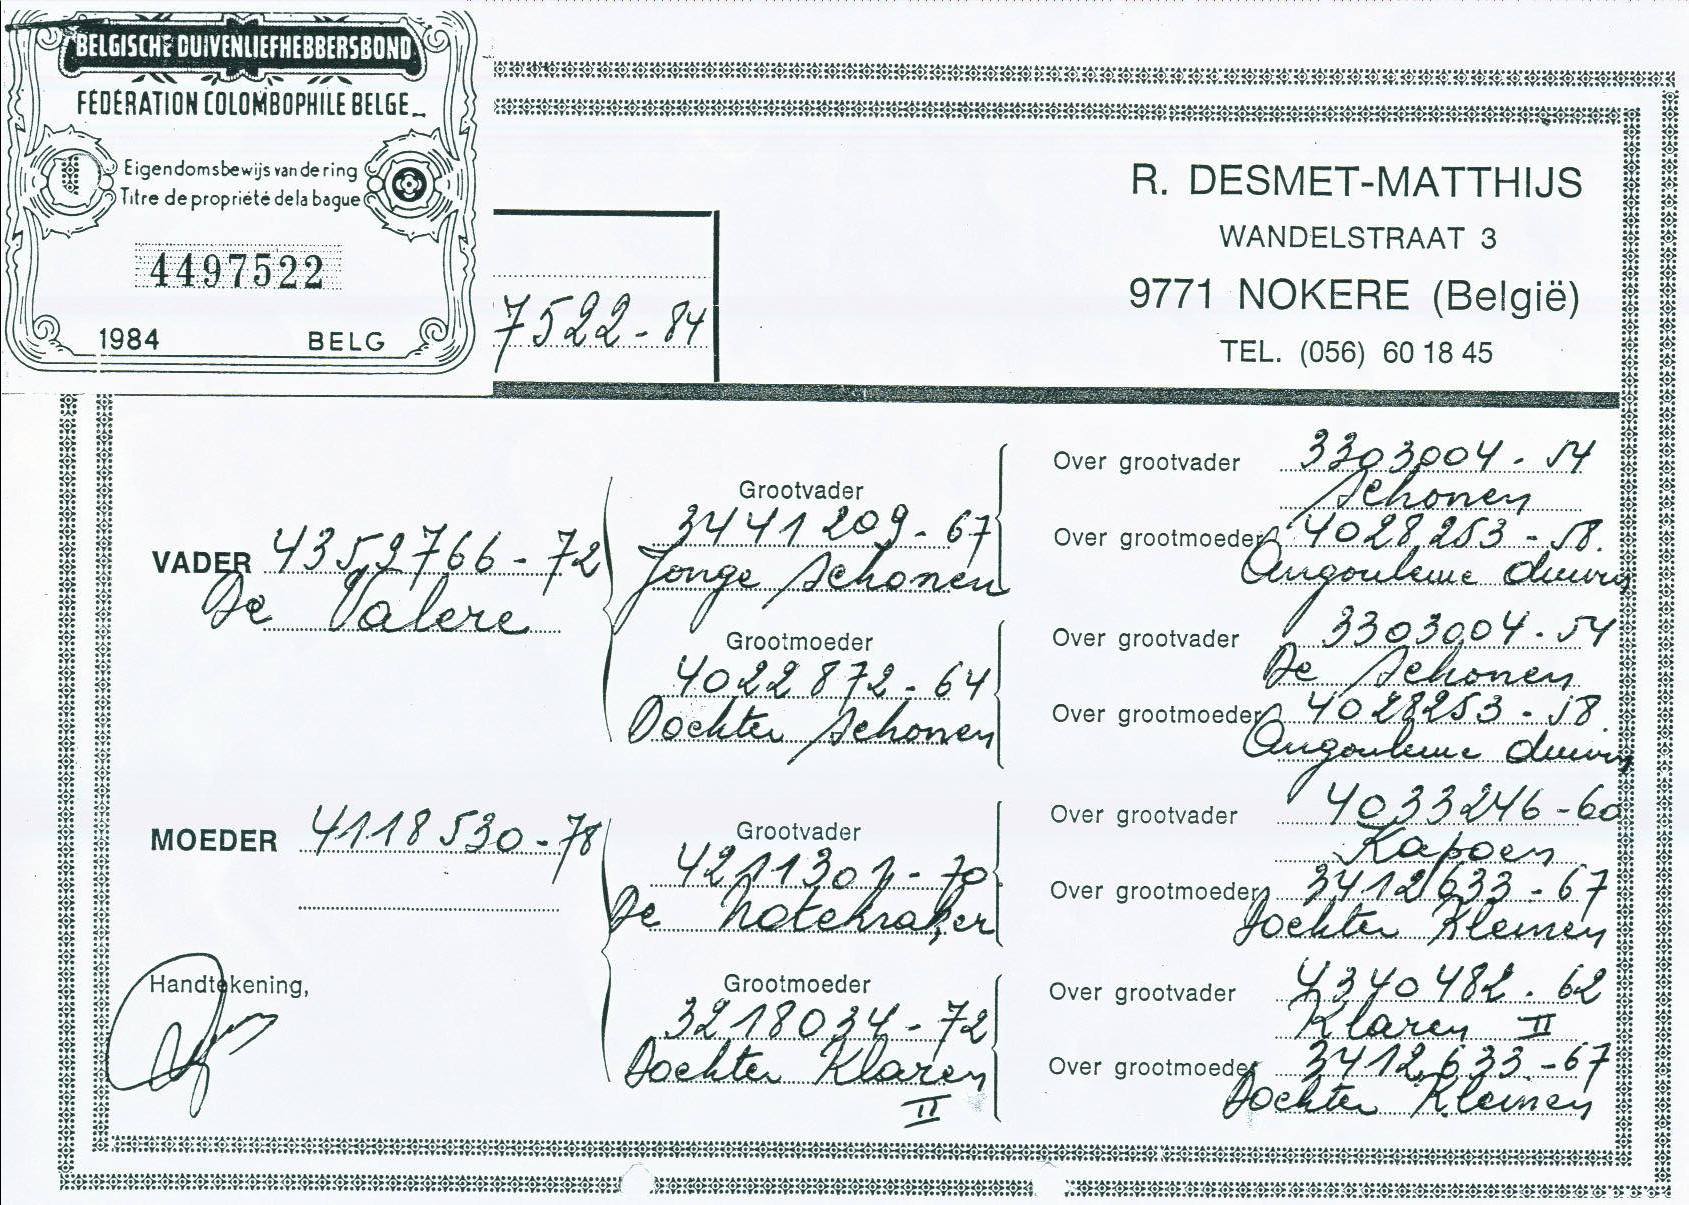 BELGISCHE DUIVENLIEFHEBBERSBOND
FÉDÉRATION COLOMBOPHILE BELGE
Eigendomsbewijs van de ring
Titre de propriété de la bague
4497522
1984 BELG
7522-84
R. DESMET-MATTHIJS
WANDELSTRAAT 3
9771 NOKERE (België)
TEL. (056) 60 18 45
VADER 4352766-72
De Valere
Grootvader
3441209-67
Jonge Schonen
Grootmoeder
4022872-64
Dochter Schonen
Over grootvader 3303004-54
Schonen
Over grootmoeder 4028253-58.
Angouleme duivin
Over grootvader 3303004-54
De Schonen
Over grootmoeder 4028253-58.
Angouleme duivin
MOEDER 4118530-78
Grootvader
4211301-70
De Notekraker
Grootmoeder
3218034-72
Dochter Klaren
II
Over grootvader 4033246-60
Kapoen
Over grootmoeder 3412633-67
Dochter Kleinen
Over grootvader 4340482-62
Klaren II
Over grootmoeder 3412633-67
Dochter Kleinen
Handtekening,